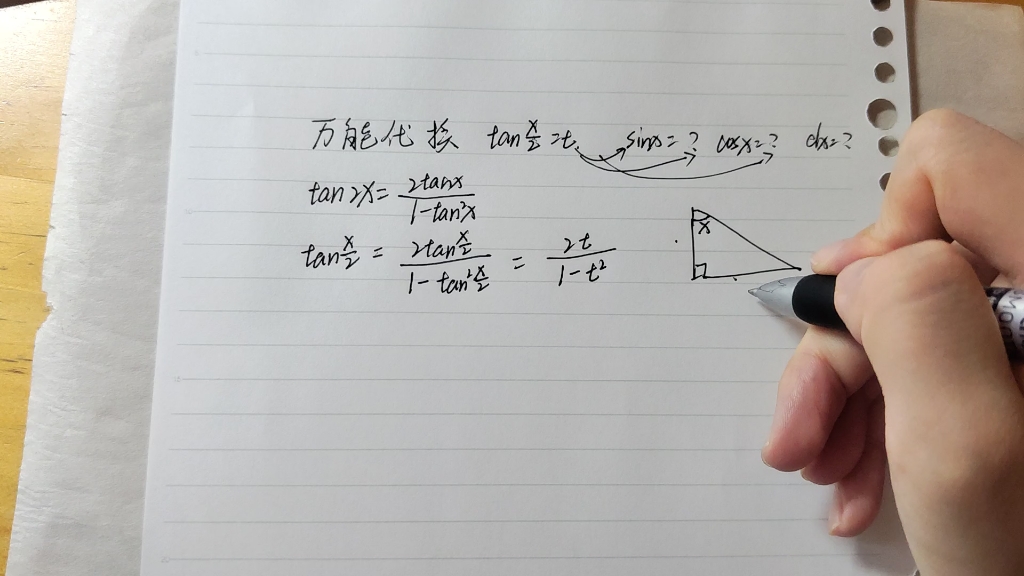 万能代换 tan x/2 = t. sinx = ? cosx = ? dx = ?
tan 2x = 2tanx / 1 - tan²x
tan x/2 = 2tan x/2 / 1 - tan² x/2 = 2t / 1 - t²
x